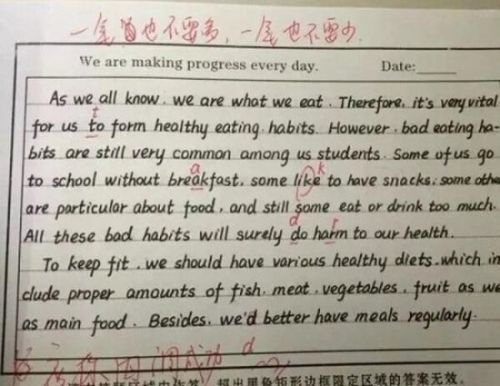 一尾
也不要多,一尾也不要少.
We are making progress every day. Date:
As we all know, we are what we eat. Therefore, it's very vital
t
for us to form healthy eating habits. However, bad eating ha-
bits are still very common among us students. Some of us go
a k
to school without breakfast, some like to have snacks, some othe
are particular about food, and still some eat or drink too much.
d r
All these bad habits will surely do harm to our health.
To keep fit, we should have various healthy diets, which in
clude proper amounts of fish, meat, vegetables, fruit as we
as main food. Besides, we'd better have meals regularly.
d
超出黑色矩形边框限定区域的答案无效。